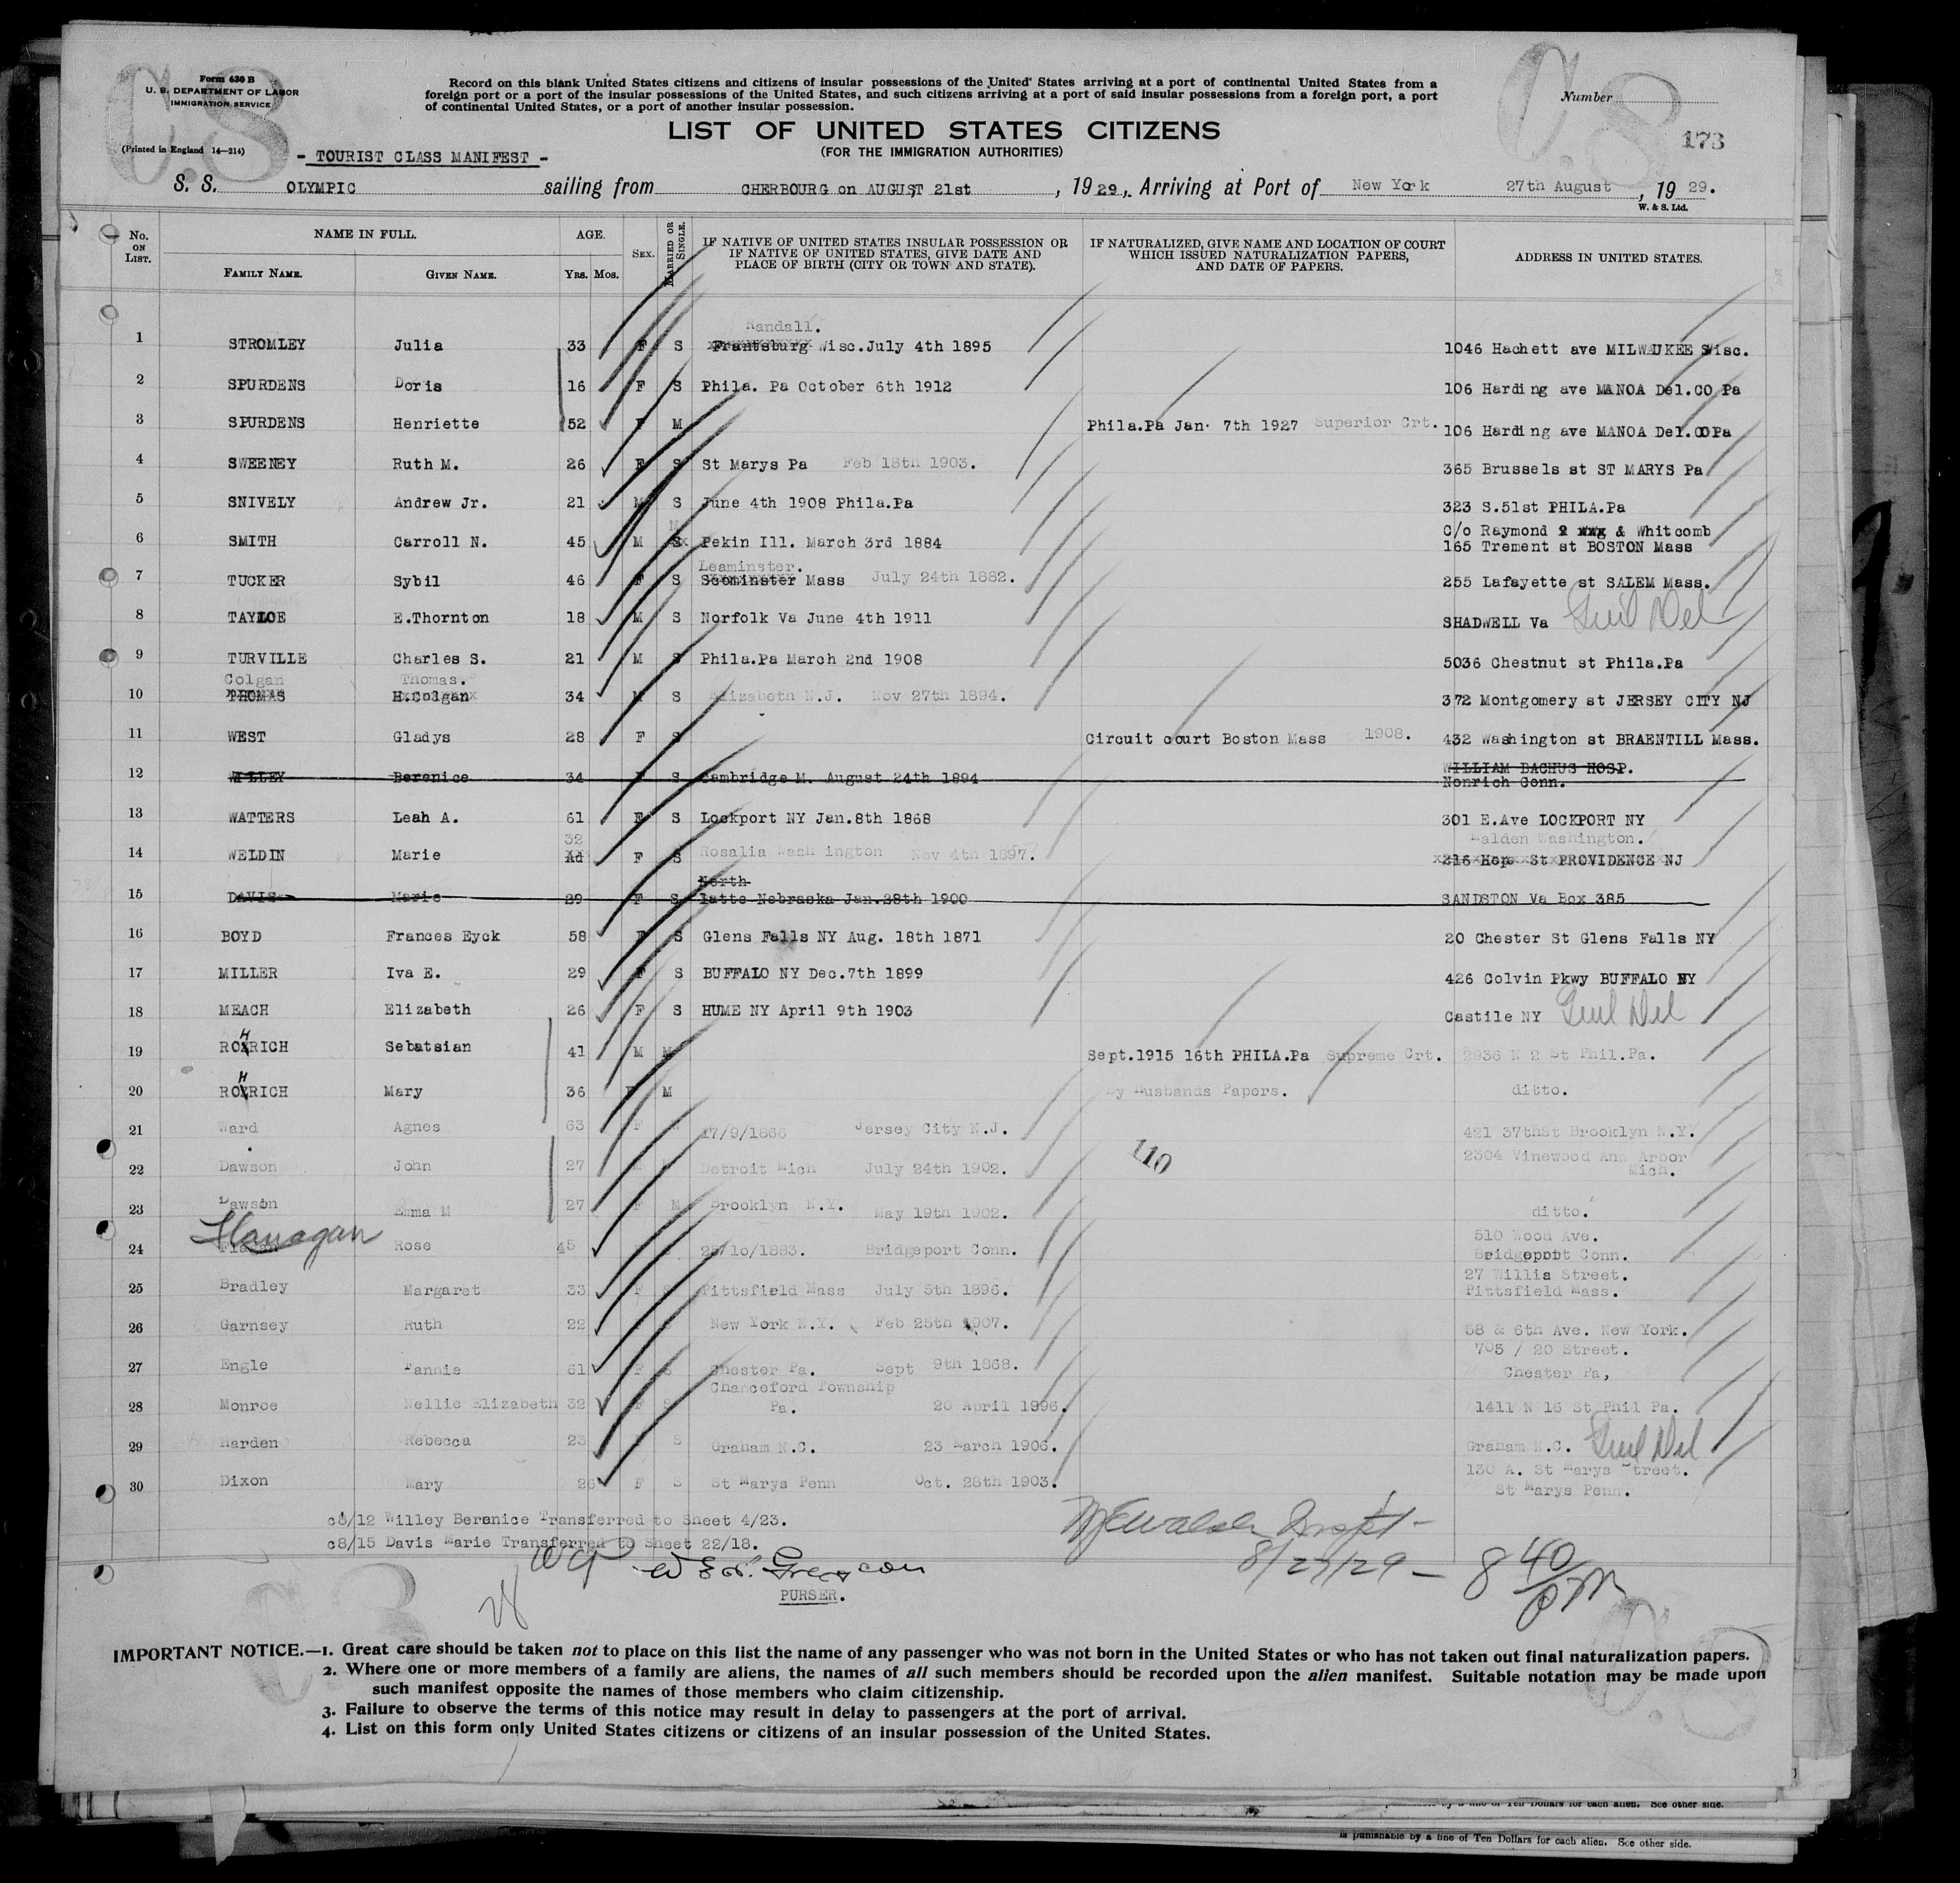 Form 630 B
U. S. DEPARTMENT OF LABOR
IMMIGRATION SERVICE
(Printed in England 14—214)
Record on this blank United States citizens and citizens of insular possessions of the United States arriving at a port of continental United States from a
foreign port or a port of the insular possessions of the United States, and such citizens arriving at a port of said insular possessions from a foreign port, a port
of continental United States, or a port of another insular possession.
Number
173
LIST OF UNITED STATES CITIZENS
(FOR THE IMMIGRATION AUTHORITIES)
- TOURIST CLASS MANIFEST -
S. S. OLYMPIC sailing from CHERBOURG on AUGUST 21st, 1929, Arriving at Port of New York 27th August, 1929.
W. & S. Ltd.
No. ON LIST. NAME IN FULL. FAMILY NAME. GIVEN NAME. AGE. YRS. MOS. SEX. MARRIED OR SINGLE. IF NATIVE OF UNITED STATES INSULAR POSSESSION OR IF NATIVE OF UNITED STATES, GIVE DATE AND PLACE OF BIRTH (CITY OR TOWN AND STATE). IF NATURALIZED, GIVE NAME AND LOCATION OF COURT WHICH ISSUED NATURALIZATION PAPERS, AND DATE OF PAPERS. ADDRESS IN UNITED STATES.
Randall.
1 STROMLEY Julia 33 F S Frantsburg Wisc. July 4th 1895 1046 Hachett ave MILWAUKEE Wisc.
2 SPURDENS Doris 16 F S Phila. Pa October 6th 1912 106 Harding ave MANOA Del.CO Pa
3 SPURDENS Henriette 52 F M Phila.Pa Jan. 7th 1927 Superior Crt. 106 Harding ave MANOA Del.CO Pa
4 SWEENEY Ruth M. 26 F S St Marys Pa Feb 18th 1903. 365 Brussels st ST MARYS Pa
5 SNIVELY Andrew Jr. 21 M S June 4th 1908 Phila.Pa 323 S.51st PHILA.Pa
M C/o Raymond & Whitcomb
6 SMITH Carroll N. 45 M S Pekin Ill. March 3rd 1884 165 Trement st BOSTON Mass
Leaminster.
7 TUCKER Sybil 46 F S Seominster Mass July 24th 1882. 255 Lafayette st SALEM Mass.
8 TAYLOE E.Thornton 18 M S Norfolk Va June 4th 1911 SHADWELL Va Genl Del
9 TURVILLE Charles S. 21 M S Phila.Pa March 2nd 1908 5036 Chestnut st Phila.Pa
Colgan Thomas.
10 THOMAS H.Colgan 34 M S Elizabeth N.J. Nov 27th 1894. 372 Montgomery st JERSEY CITY NJ
11 WEST Gladys 28 F S Circuit court Boston Mass 1908. 432 Washington st BRAENTILL Mass.
12 WILLEY Berenice 34 F S Cambridge M. August 24th 1894 WILLIAM BACHUS HOSP.
Nonrich Conn.
13 WATTERS Leah A. 61 F S Lockport NY Jan.8th 1868 301 E.Ave LOCKPORT NY
32 Malden Washington.
14 WELDIN Marie Ad F S Rosalia Washington Nov 4th 1897. 216 Hope St PROVIDENCE NJ
North
15 DAVIS Marie 29 F S latte Nebraska Jan.28th 1900 SANDSTON Va Box 385
16 BOYD Frances Eyck 58 F S Glens Falls NY Aug. 18th 1871 20 Chester St Glens Falls NY
17 MILLER Iva E. 29 F S BUFFALO NY Dec.7th 1899 426 Colvin Pkwy BUFFALO NY
18 MEACH Elizabeth 26 F S HUME NY April 9th 1903 Castile NY Genl Del
19 ROHRICH Sebatsian 41 M M Sept.1915 16th PHILA.Pa Supreme Crt. 2936 N 2 St Phil.Pa.
20 ROHRICH Mary 36 F M By Husbands Papers. ditto.
21 Ward Agnes 63 F 17/9/1866 Jersey City N.J. 421 37thSt Brooklyn N.Y.
22 Dawson John 27 Detroit Mich July 24th 1902. 2304 Vinewood Ann Arbor
Mich.
110
23 Dawson Emma M 27 F M Brooklyn N.Y. May 19th 1902. ditto.
Flanagan
510 Wood Ave.
24 Rose 45 25/10/1883. Bridgeport Conn. Bridgeport Conn.
27 Willis Street.
25 Bradley Margaret 33 F S Pittsfield Mass July 5th 1896. Pittsfield Mass.
26 Garnsey Ruth 22 New York N.Y. Feb 25th 1907. 58 & 6th Ave. New York.
705 / 20 Street.
27 Engle Fannie 61 F S Chester Pa. Sept 9th 1868. Chester Pa,
Chanceford Township
28 Monroe Nellie Elizabeth 32 F S Pa. 20 April 1896. 1411 N 16 St Phil Pa.
29 Harden Rebecca 23 S Graham N.C. 23 March 1906. Graham N.C. Genl Del
130 A. St Marys Street.
30 Dixon Mary 26 F S St Marys Penn Oct. 28th 1903. St Marys Penn.
c8/12 Willey Berenice Transferred to Sheet 4/23.
c8/15 Davis Marie Transferred to Sheet 22/18.
Inspt -
8/27/29 — 8 40/pm
PURSER.
IMPORTANT NOTICE.—1. Great care should be taken not to place on this list the name of any passenger who was not born in the United States or who has not taken out final naturalization papers.
2. Where one or more members of a family are aliens, the names of all such members should be recorded upon the alien manifest. Suitable notation may be made upon
such manifest opposite the names of those members who claim citizenship.
3. Failure to observe the terms of this notice may result in delay to passengers at the port of arrival.
4. List on this form only United States citizens or citizens of an insular possession of the United States.
Ten Dollars for each alien. See other side.
is punishable by a fine of Ten Dollars for each alien. See other side.